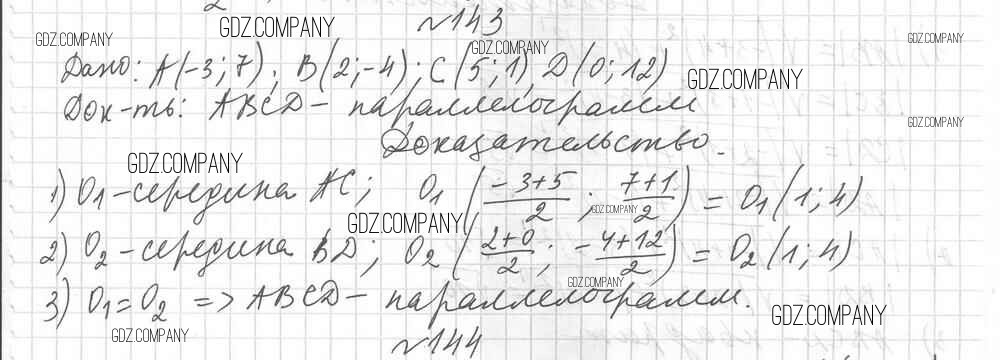 №143
Дано: A(-3; 7); B(2; -4); C(5; 1), D(0; 12)
Док-ть: ABCD - параллелограмм
Доказательство.
1) O1 - середина AC; O1 ((-3+5)/2; (7+1)/2) = O1(1; 4)
2) O2 - середина BD; O2 ((2+0)/2; (-4+12)/2) = O2(1; 4)
3) O1 = O2 => ABCD - параллелограмм.
№144
GDZ.COMPANY
GDZ.COMPANY
GDZ.COMPANY
GDZ.COMPANY
GDZ.COMPANY
GDZ.COMPANY
GDZ.COMPANY
GDZ.COMPANY
GDZ.COMPANY
GDZ.COMPANY
GDZ.COMPANY
GDZ.COMPANY